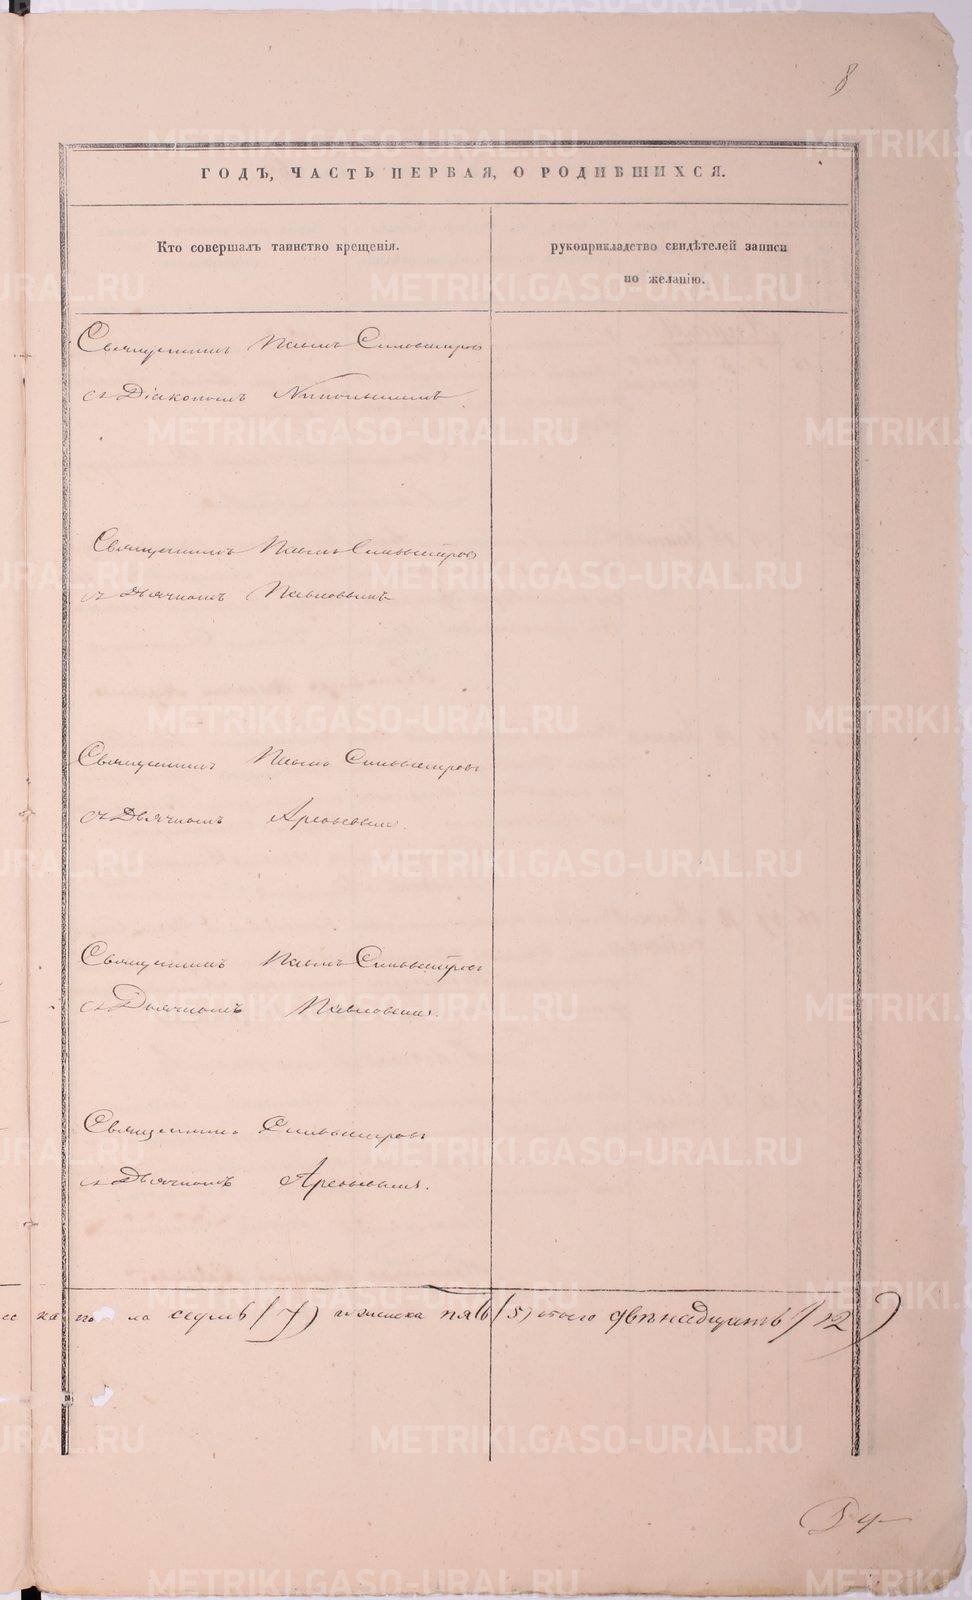 8
ГОДЪ, ЧАСТЬ ПЕРВАЯ, О РОДИВШИХСЯ.
Кто совершалъ таинство крещенія.
рукоприкладство свидѣтелей записи
по желанію.
Священникъ Павелъ Сильвестровъ
съ Діакономъ
Священникъ Павелъ Сильвестровъ
съ Дьячкомъ Павловымъ
Священникъ Павелъ Сильвестровъ
съ Дьячкомъ Арсеньевымъ.
Священникъ Павелъ Сильвестровъ
съ Дьячкомъ Павловымъ.
Священникъ Сильвестровъ
съ Дьячкомъ Арсеньевымъ.
седмь (7) женска пять (5) итого двѣнадцать (12)
METRIKI.GASO-URAL.RU